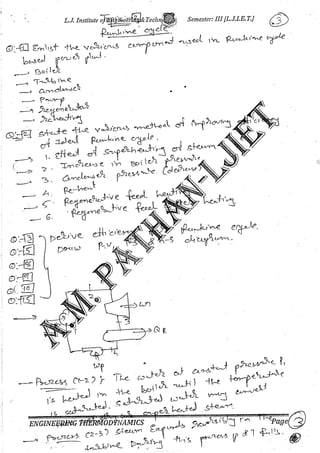 L.J Institute of Engg & Techno Semester: III [L.J.I.E.T.] 3
Rankine cycle.
Q:-1 Enlist the various component used in Rankine cycle
based power plant.
— Boiler
— Turbine
— Condenser
— Pump
— Regenerator
— Reheating
Q:-2 State the various method of improving efficiency
of Ideal Rankine cycle.
— 1. Effect of Superheating of steam
— 2. Increase in Boiler pressure
— 3. Condenser pressure (decrease)
— 4. Re-heat
— 5. Regenerative feed heating
— 6. Regenerative feed heating
Q:-3 Derive efficiency Rankine cycle.
Q:-5 Draw P-V, T-S diagram.
Q:-8
Q:-9
Q:-10
Q:-15
A.M PATHAN-LJIET
2
3
QR
4
Wp
— Process (1-2) } The water at constant pressure P,
is heated in the boiler until the temperature
is saturated. Saturated water may convert
superheated steam.
ENGINEERING THERMODYNAMICS Page 3
— Process (2-3) Steam expands reversibly in the
turbine During this process P & T falls.